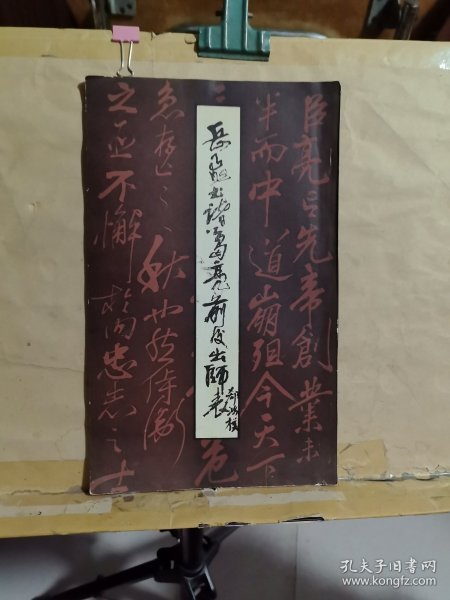 臣亮言先帝創業未
半而中道崩殂今天下
危
急存亡之秋也然侍衛
之臣不懈於内忠志之士
岳飛书諸葛亮前後出師表
孔夫子旧书网
www.kongfz.com